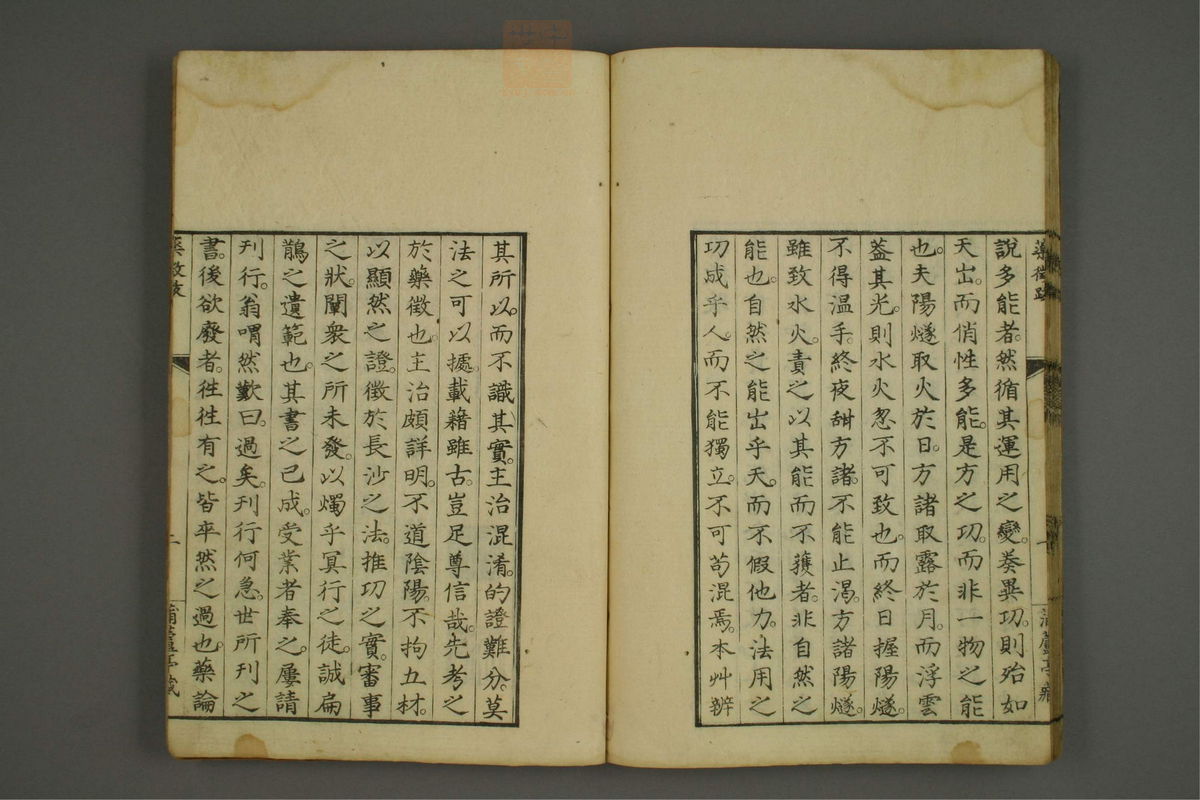 藥徵跋
說多能者。然循其運用之變。奏異功。則殆如
天出。而俏性多能。是方之功。而非一物之能
也。夫陽燧取火於日。方諸取露於月。而浮雲
蓋其光。則水火忽不可致也。而終日握陽燧。
不得温手。終夜甜方諸。不能止渴。方諸陽燧。
雖致水火。責之以其能而不獲者。非自然之
能也。自然之能出乎天。而不假他力。法用之
功成乎人。而不能獨立。不可苟混焉。本艸辨
其所以。而不識其實。主治混淆。的證難分。莫
法之可以據。載籍雖古。豈足尊信哉。先考之
於藥徵也。主治頗詳明。不道陰陽。不拘五材。
以顯然之證。徵於長沙之法。推功之實。審事
之狀。闡衆之所未發。以燭乎冥行之徒。誠扁
鵲之遺範也。其書之已成。受業者奉之。屢請
刊行。翁喟然歎曰。過矣。刊行何急。世所刊之
書。後欲廢者。往往有之。皆卒然之過也。藥論